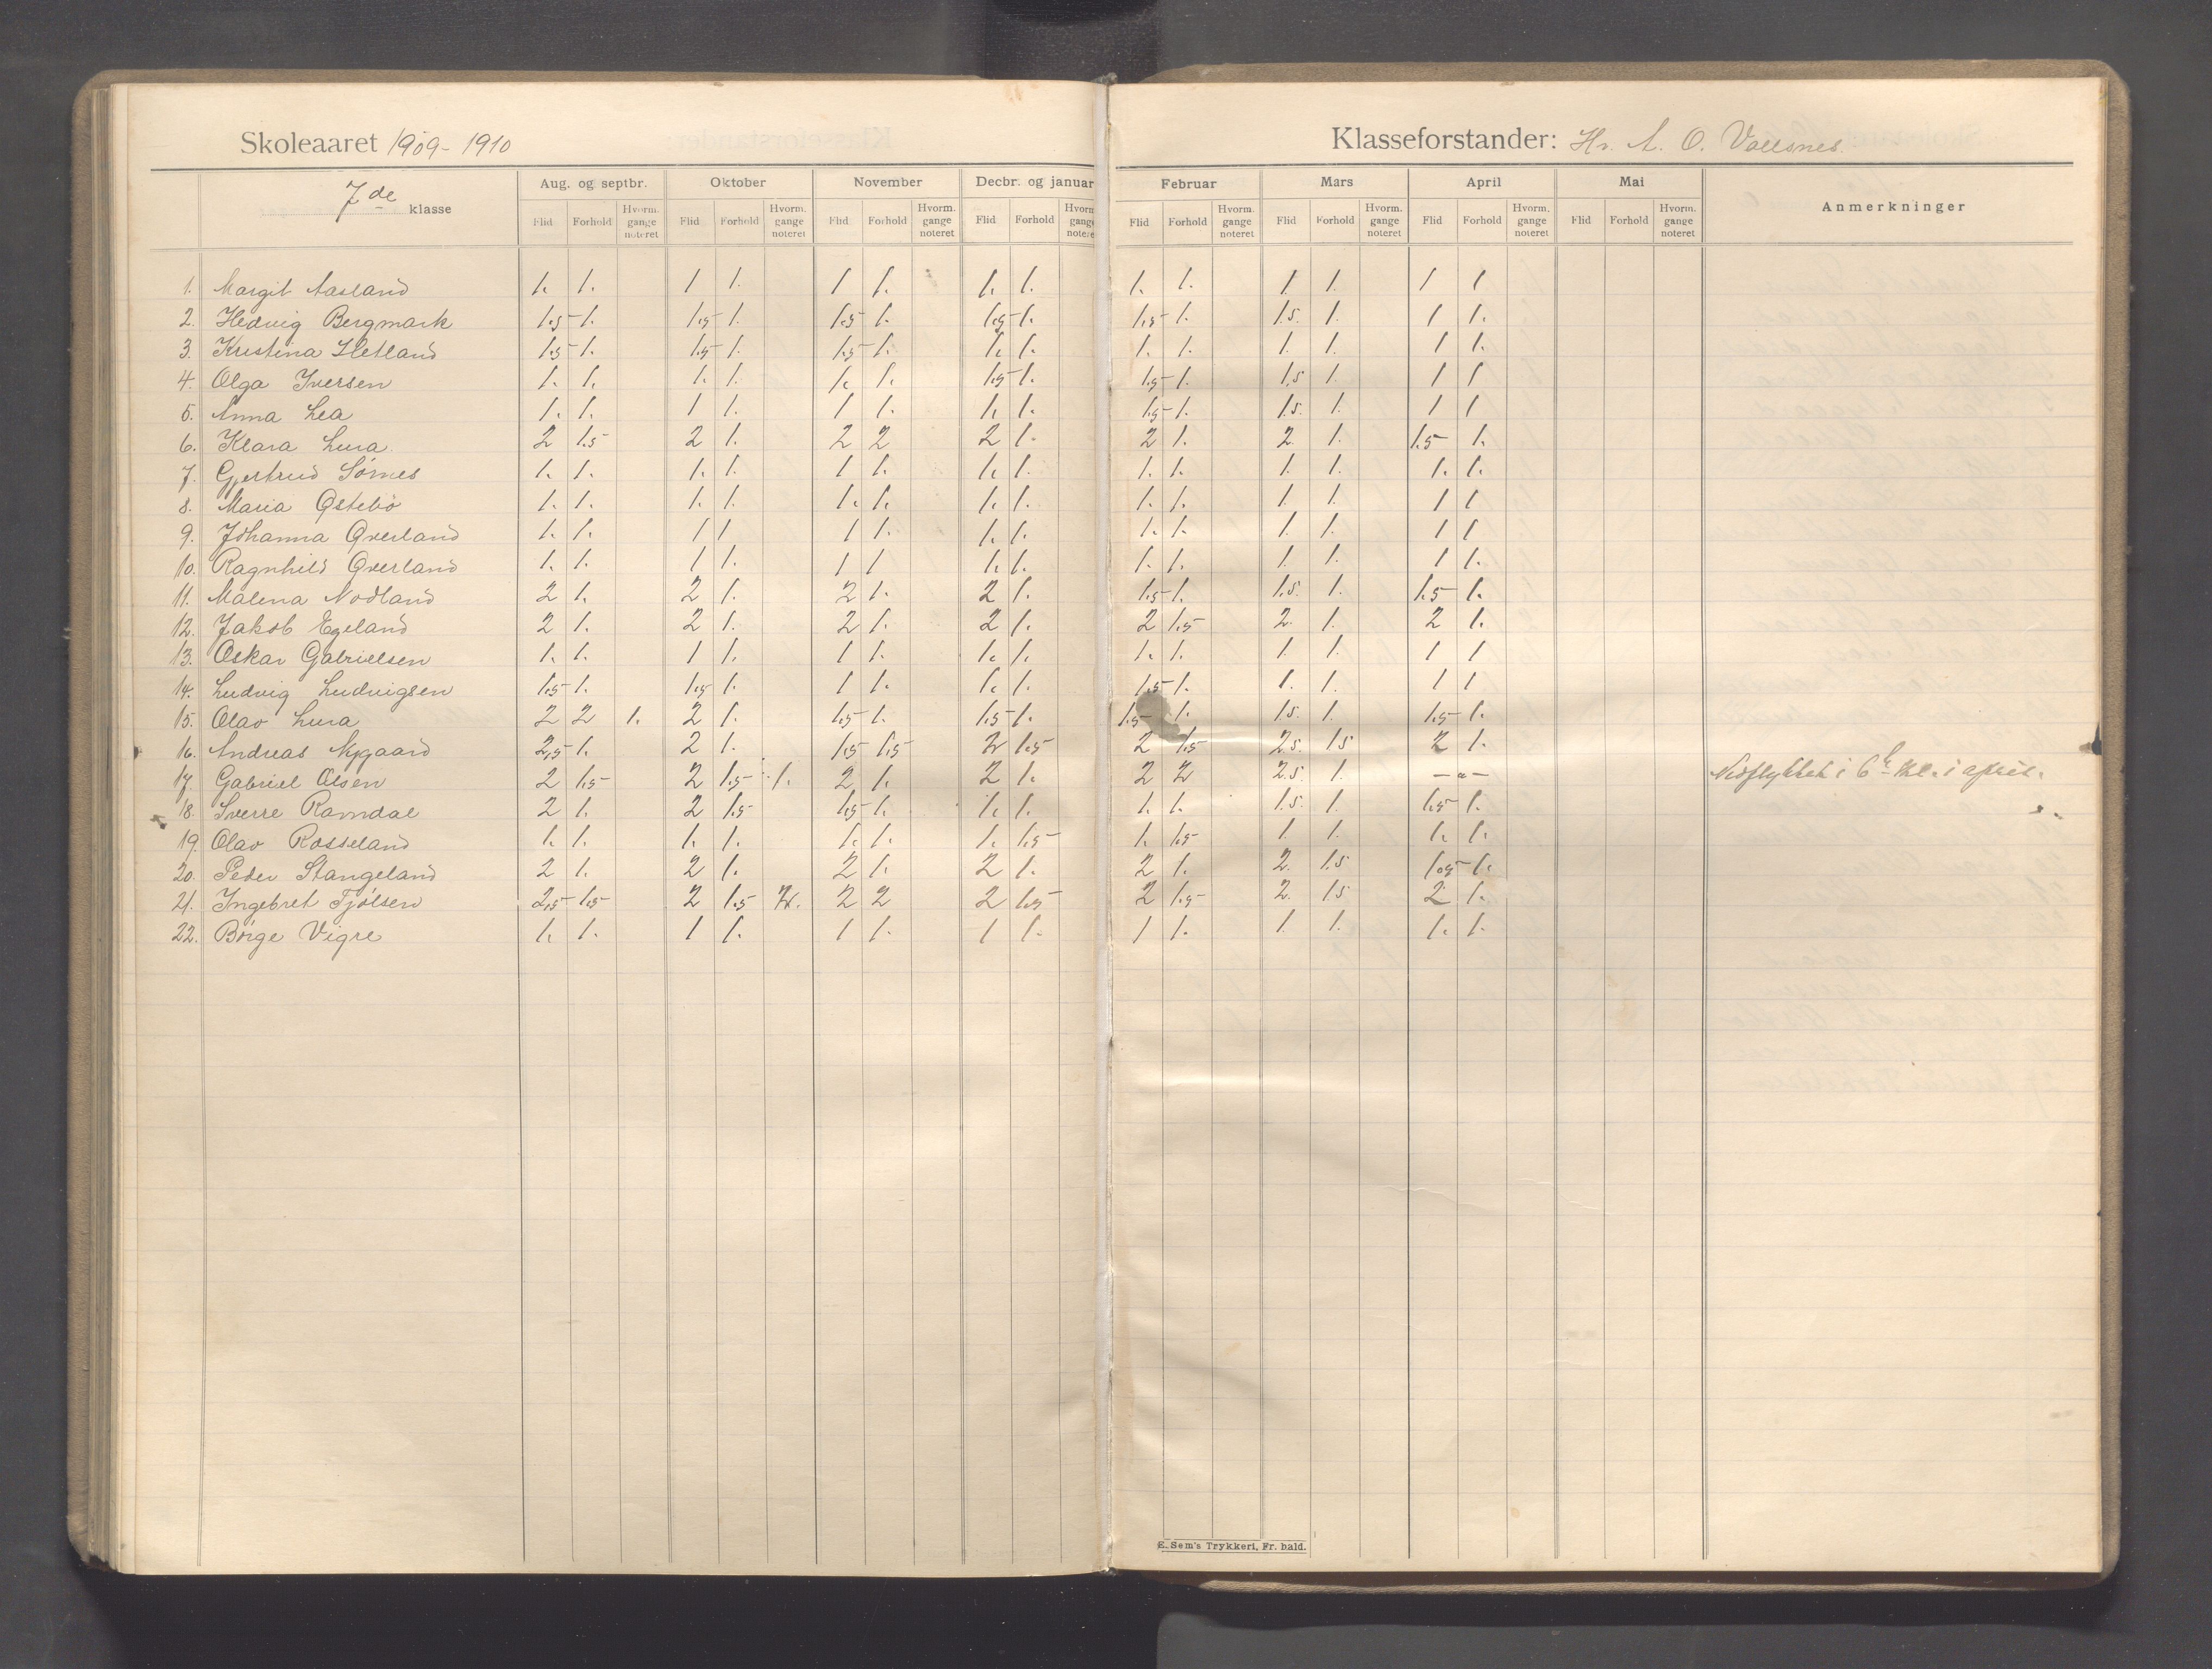 Skoleaaret 1909-1910
Klasseforstander: Hr. A. O. Vallsnes.
7de klasse
Aug. og septbr. Oktober November Decbr. og januar Februar Mars April Mai Anmerkninger
Flid Forhold Hvorm. gange noteret Flid Forhold Hvorm. gange noteret Flid Forhold Hvorm. gange noteret Flid Forhold Hvorm. gange notere Flid Forhold Hvorm. gange noteret Flid Forhold Hvorm. gange noteret Flid Forhold Hvorm. gange noteret Flid Forhold Hvorm. gange noteret
1. Margit Aasland 1. 1. 1 1. 1 1. 1. 1. 1. 1. 1. 1. 1 1
2. Hedvig Bergmark 1.5 1. 1.5 1. 1.5 1. 1.5 1. 1.5 1. 1.5. 1. 1 1.
3. Kristina Hetland 1.5 1. 1.5 1. 1.5 1. 1. 1. 1. 1. 1. 1. 1 1.
4. Olga Iversen 1. 1. 1. 1. 1. 1. 1.5 1. 1.5 1. 1.5 1. 1 1
5. Anna Lea 1. 1. 1 1. 1 1. 1. 1. 1.5 1. 1.5. 1. 1 1
6. Klara Lura 2 1.5 2 1. 2 2 2 1. 2 1. 2. 1. 1.5 1.
7. Gjertrud Sømes 1. 1. 1. 1. 1 1. 1. 1. 1. 1. 1. 1. 1. 1.
8. Maria Østebø 1. 1. 1. 1. 1. 1. 1. 1. 1. 1. 1. 1. 1 1
9. Johanna Øverland 1. 1. 1 1 1 1. 1. 1. 1. 1. 1. 1. 1 1
10. Ragnhild Øverland 1. 1. 1 1. 1 1 1. 1. 1. 1. 1. 1. 1 1.
11. Malena Nodland 2 1. 2 1. 2 1. 2 1. 1.5 1. 1.5. 1. 1.5 1.
12. Jakob Egeland 2 1. 2 1. 2 1. 2 1. 2 1.5 2. 1. 2 1.
13. Oskar Gabrielsen 1. 1. 1 1. 1 1. 1. 1. 1. 1. 1. 1. 1 1
14. Ludvig Ludvigsen 1.5 1. 1.5 1. 1 1. 1. 1. 1.5 1. 1. 1. 1 1
15. Olav Lura 2 2 1. 2 1. 1.5 1. 1.5 1. 1.5 1. 1.5. 1. 1.5 1.
16. Andreas Nygaard 2,5 1. 2 1. 1.5 1.5 2 1.5 2 1.5 2.5. 1.5 2 1.
17. Gabriel Olsen 2 1.5 2 1.5 1. 2 1. 2 1. 2 2 2.5. 1. —"— Nedflyttet i 6te kl. i april.
18. Sverre Ramdal 2 1. 2 1.5 1.5 1. 1. 1. 1. 1. 1.5. 1. 1.5 1.
19. Olav Rosseland 1. 1. 1. 1. 1. 1. 1. 1.5 1. 1.5 1. 1. 1. 1.
20. Peder Stangeland 2 1. 2 1. 2 1. 2 1. 2 1. 2. 1.5 1.5 1.
21. Ingebret Tjølsen 2,5 1.5 2 1.5 2. 2 2 2 1.5 2 1.5 2. 1.5 2 1.
22. Børge Vigre 1. 1. 1 1. 1 1. 1 1. 1 1. 1. 1. 1. 1.
E. Sem's Trykkeri, Fr. hald.